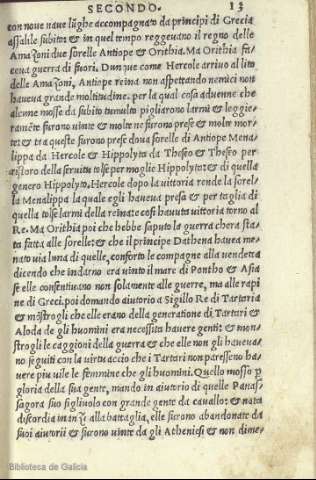 SECONDO. 13
con noue naue lũghe accompagnato da principi di Grecia
assalile subito: & in quel tempo reggeuano il regno delle
Amazoni due sorelle Antiope & Orithia. Ma Orithia fa-
ceua guerra di fuori. Dunque come Hercole arriuo al lito
delle Amazoni, Antiope reina non aspettando nemici non
haueua grande moltitudine. per la qual cosa aduenne che
alcune mosse da subito tumulto pigliarono larmi & leggie-
ramẽte furono uinte & molte ne furono prese & molte mor-
te: & tra queste furono prese doua sorelle di Antiope Mena-
lippa da Hercole & Hippolyta da Theseo & Theseo per
ristoro della seruitu tolse per moglie Hippolyta: & di quella
genero Hippolyto. Hercole dopo la uittoria rende la sorel-
la Menalippa la quale egli haueua presa & per taglia di
quella tolse larmi della reina: e cosi hauuta uittoria torno al
Re. Ma Orithia poi che hebbe saputo la guerra chera sta-
ta fatta alle sorelle: & che il principe Dathena hauea me-
nato uia luna di quelle, conforto le compagne alla uendetta
dicendo che indarno era uinto il mare di Pontho & Asia
se elle consentiuano non solamente alle guerre, ma alle rapi-
ne di Greci. poi domando aiutorio a Sigillo Re di Tartaria
& mõstrogli che elle erano della generatione di Tartari &
Aloda de gli huomini era necessita hauere genti: & mon-
strogli le caggioni della guerra & che elle non gli haueua-
no seguiti con la uirtu accio che i Tartari non paressono ha-
uere piu uile le femmine che gli huomini. Quello mosso p
gloria della sua gente, mando in aiutorio di quelle Panas-
sagora suo figliuolo con grande gente da cauallo: & nata
discordia inanzi alla battaglia, elle furono abandonate da
suoi aiutorii & furono uinte da gli Atheniesi & non dime-
Biblioteca de Galicia